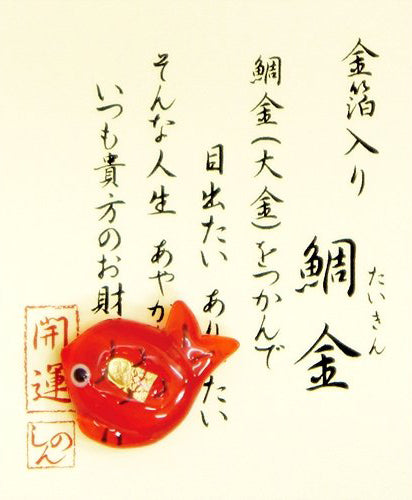 金箔入り
鯛金
たいきん
鯛金(大金)をつかんで
目出たい あり たい
そんな人生 あやか
いつも貴方のお財
開運
のしん